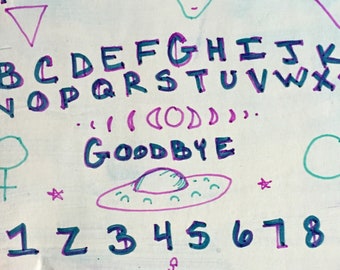 B C D E F G H I J K
N O P Q R S T U V W X
GOODBYE
1 2 3 4 5 6 7 8